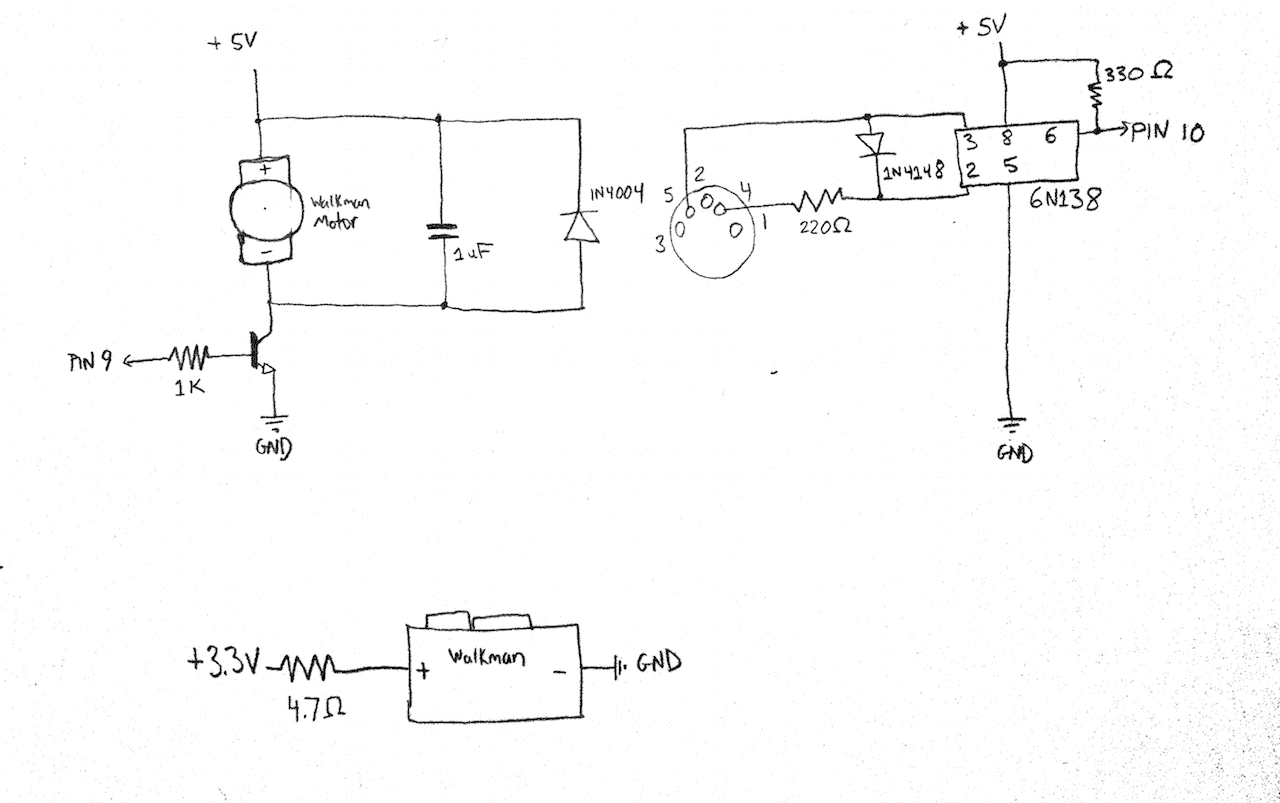 +5V
+
Walkman
Motor
-
1uF
1N4004
PIN 9
1K
GND
+5V
330Ω
PIN 10
3 8 6
2 5
6N138
1N4148
2
5 4
3 1
220Ω
GND
+3.3V
4.7Ω
Walkman
+ -
GND